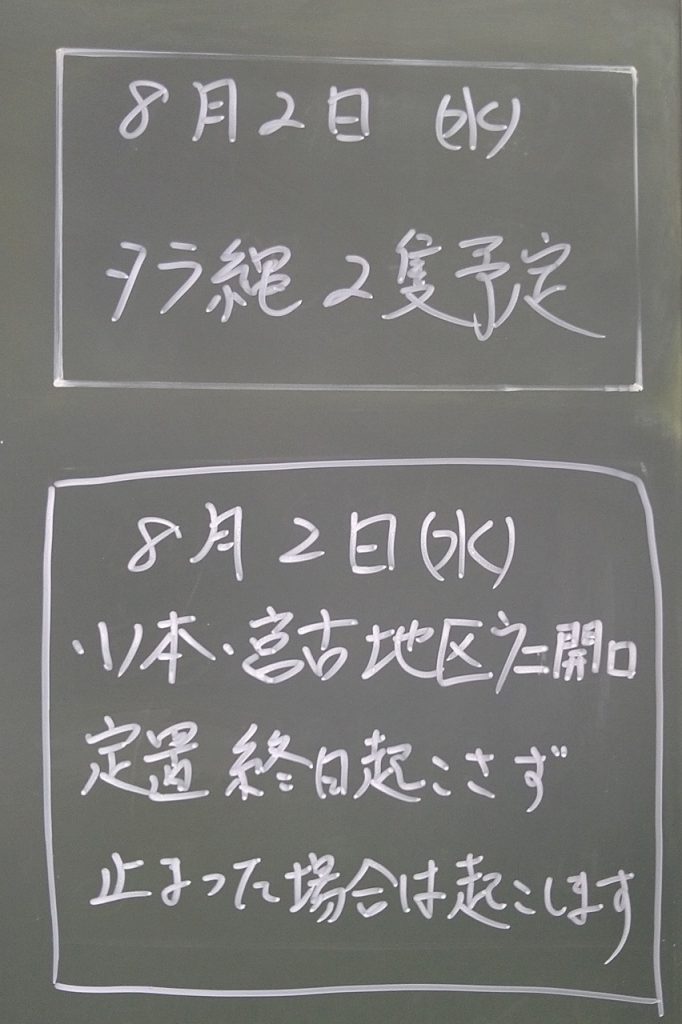 8月2日 (水)
タラ縄 2隻予定
8月2日(水)
小本・宮古地区ウニ開口
定置 終日起こさず
止まった場合は起こします